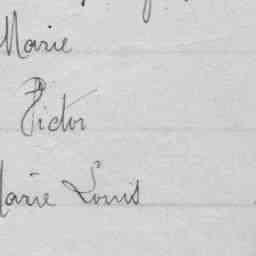 Marie
Victor
Marie Louis